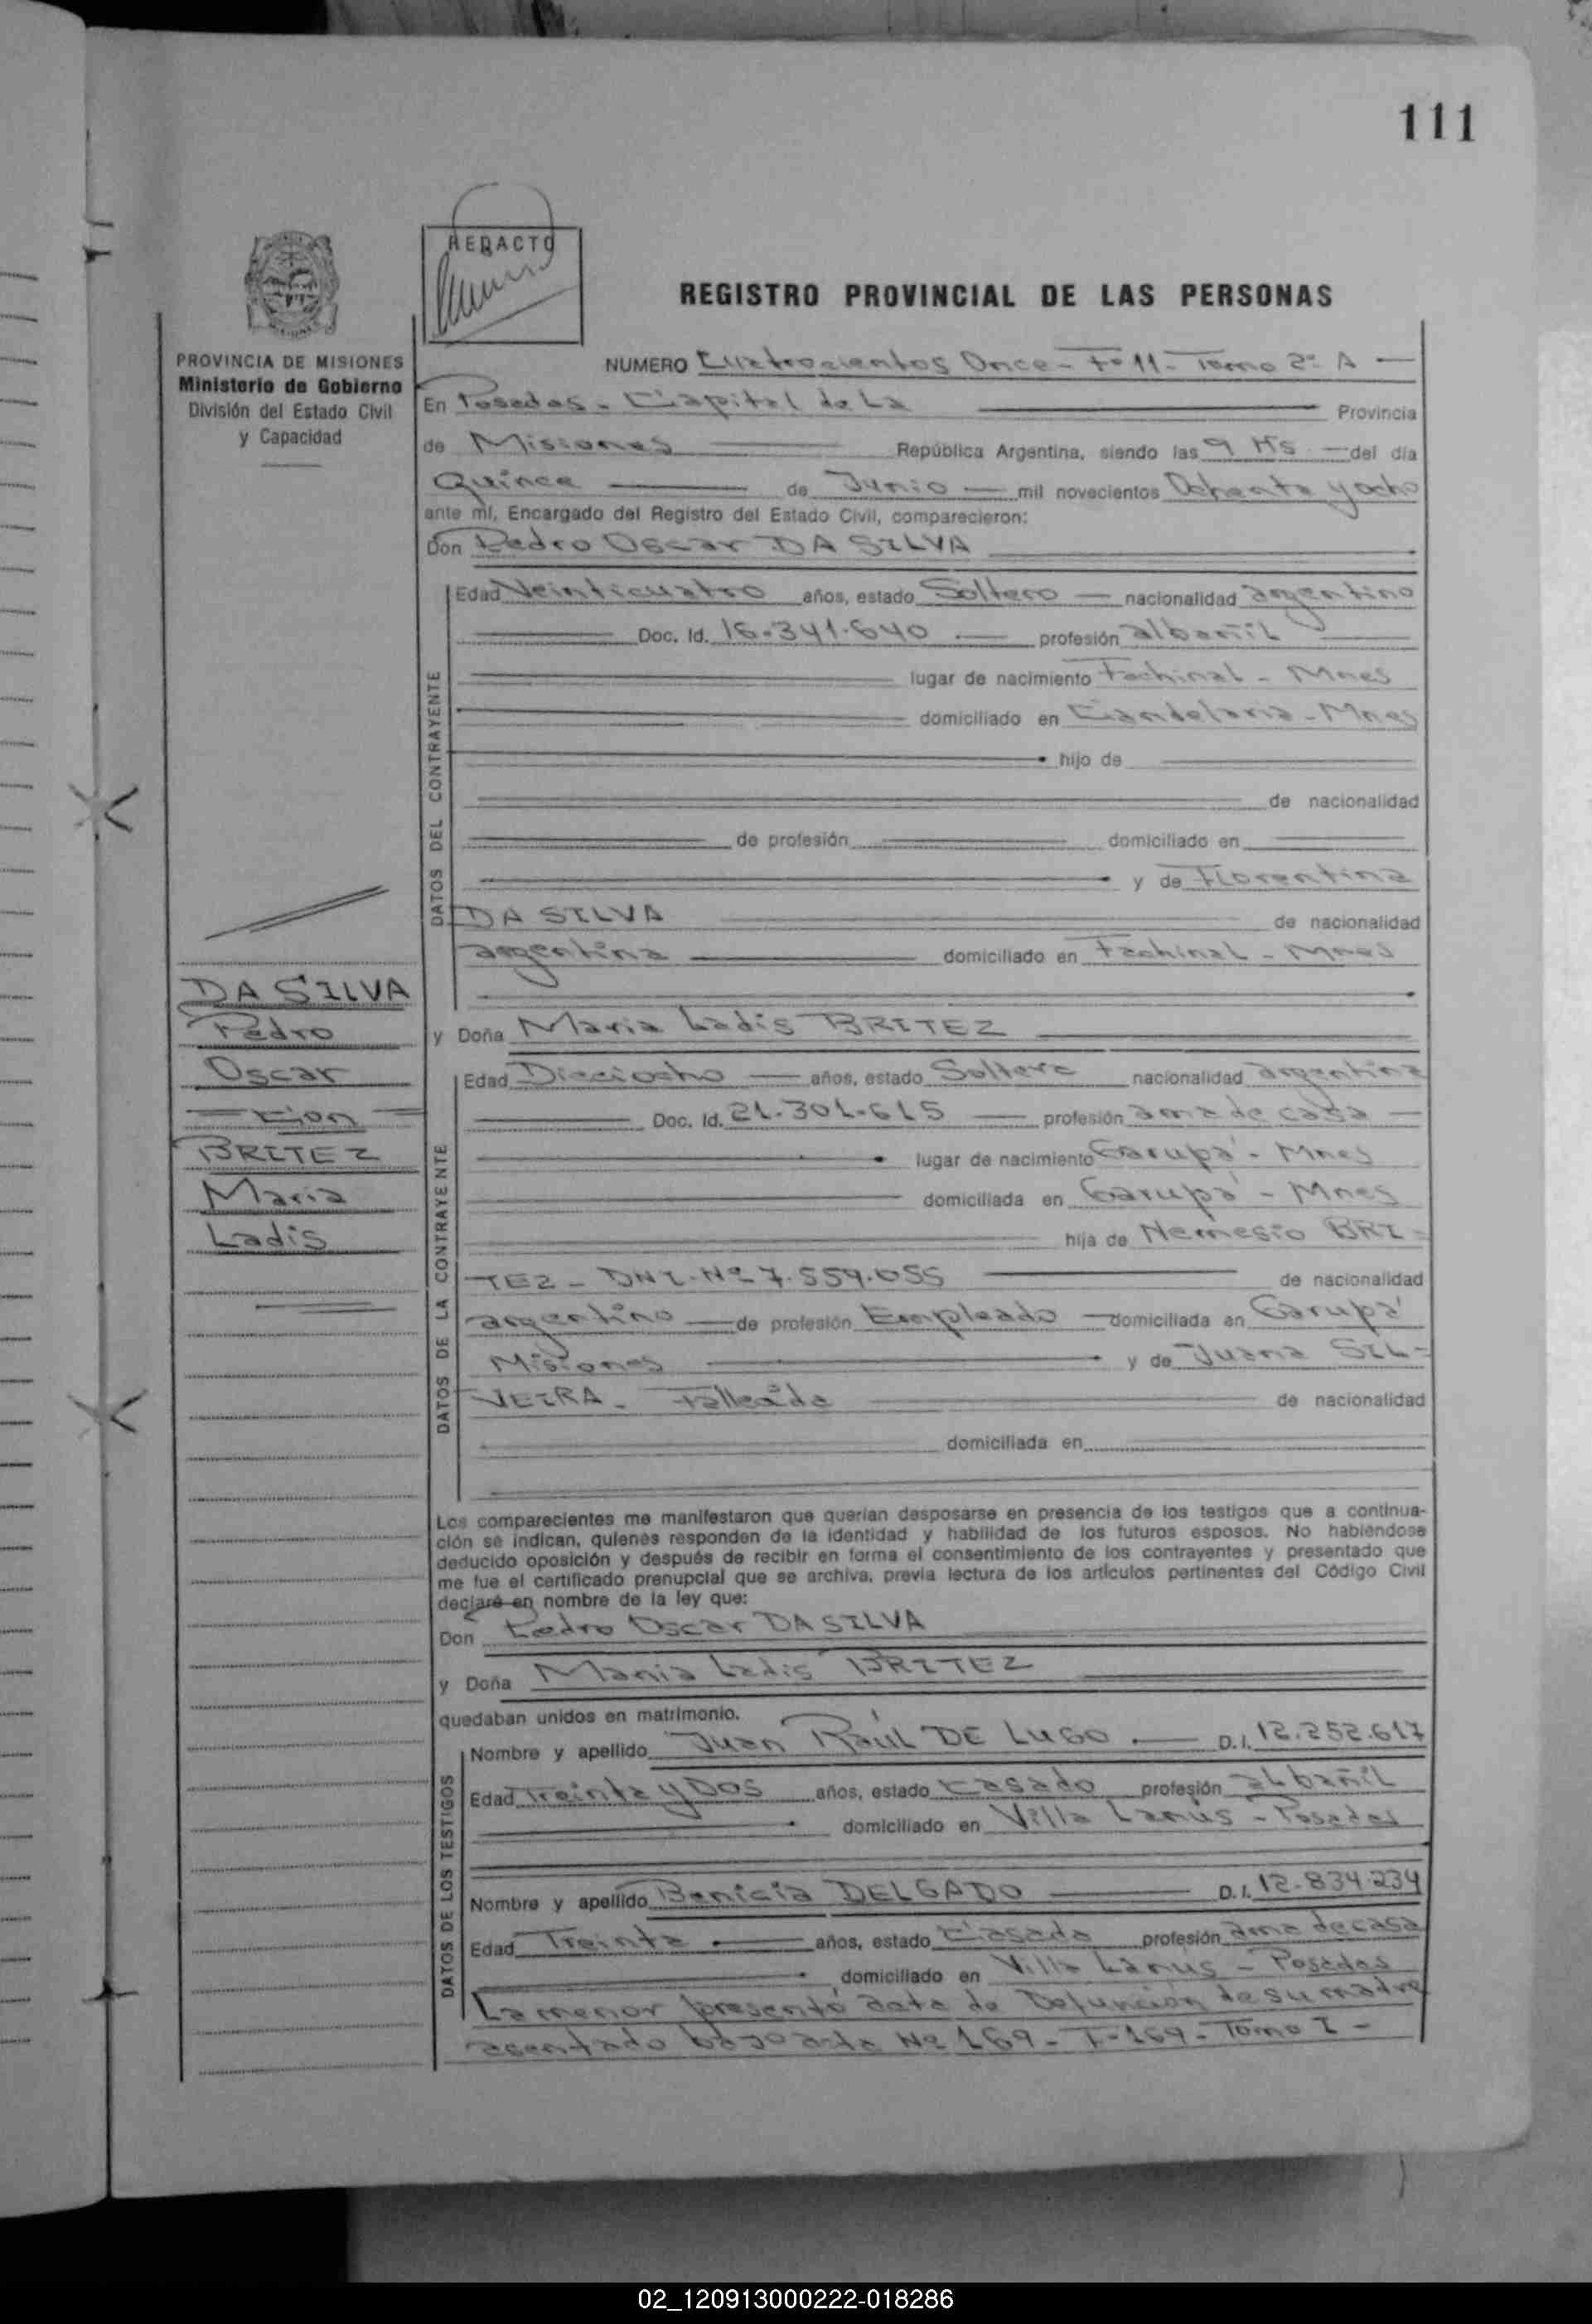 111
REDACTO
REGISTRO PROVINCIAL DE LAS PERSONAS
PROVINCIA DE MISIONES
Ministerio de Gobierno
División del Estado Civil
y Capacidad
NUMERO Cuatrocientos Once - Fº 11 - Tomo 2º A —
En Posadas - Capital de La Provincia
de Misiones República Argentina, siendo las 9 Hs — del día
Quince de Junio — mil novecientos Ochenta y ocho
ante mí, Encargado del Registro del Estado Civil, comparecieron:
Don Pedro Oscar DA SILVA
DATOS DEL CONTRAYENTE
Edad Veinticuatro años, estado Soltero — nacionalidad argentino
Doc. Id. 16.341.640 — profesión albañil
lugar de nacimiento Fachinal - Mnes
domiciliado en Candelaria - Mnes
hijo de
de nacionalidad
de profesión domiciliado en
y de Florentina
DA SILVA de nacionalidad
argentina domiciliado en Fachinal - Mnes
DA SILVA
Pedro
Oscar
= con =
BRITEZ
Maria
Ladis
y Doña Maria Ladis BRITEZ
DATOS DE LA CONTRAYENTE
Edad Dieciocho — años, estado Soltera nacionalidad argentina
Doc. Id. 21.301.615 — profesión ama de casa —
lugar de nacimiento Garupá - Mnes
domiciliada en Garupá - Mnes
hija de Nemesio BRI-
TEZ - DNI. Nº 7.559.055 de nacionalidad
argentino — de profesión Empleado — domiciliada en Garupá
Misiones y de Juana SIL-
VEIRA - Fallecida de nacionalidad
domiciliada en
Los comparecientes me manifestaron que querían desposarse en presencia de los testigos que a continua-
ción se indican, quienes responden de la identidad y habilidad de los futuros esposos. No habiéndose
deducido oposición y después de recibir en forma el consentimiento de los contrayentes y presentado que
me fue el certificado prenupcial que se archiva, previa lectura de los artículos pertinentes del Código Civil
declaré en nombre de la ley que:
Don Pedro Oscar DA SILVA
y Doña Maria Ladis BRITEZ
quedaban unidos en matrimonio.
DATOS DE LOS TESTIGOS
Nombre y apellido Juan Raúl DE LUGO — D.I. 12.252.617
Edad Treinta y DOS años, estado casado profesión albañil
domiciliado en Villa Lanús - Posadas
Nombre y apellido Benicia DELGADO D.I. 12.834.234
Edad Treinta años, estado Casada profesión ama de casa
domiciliado en Villa Lanús - Posadas
La menor presentó acta de Defunción de su madre
asentado bajo acta Nº 169 - F-169 - Tomo I -
02_120913000222-018286